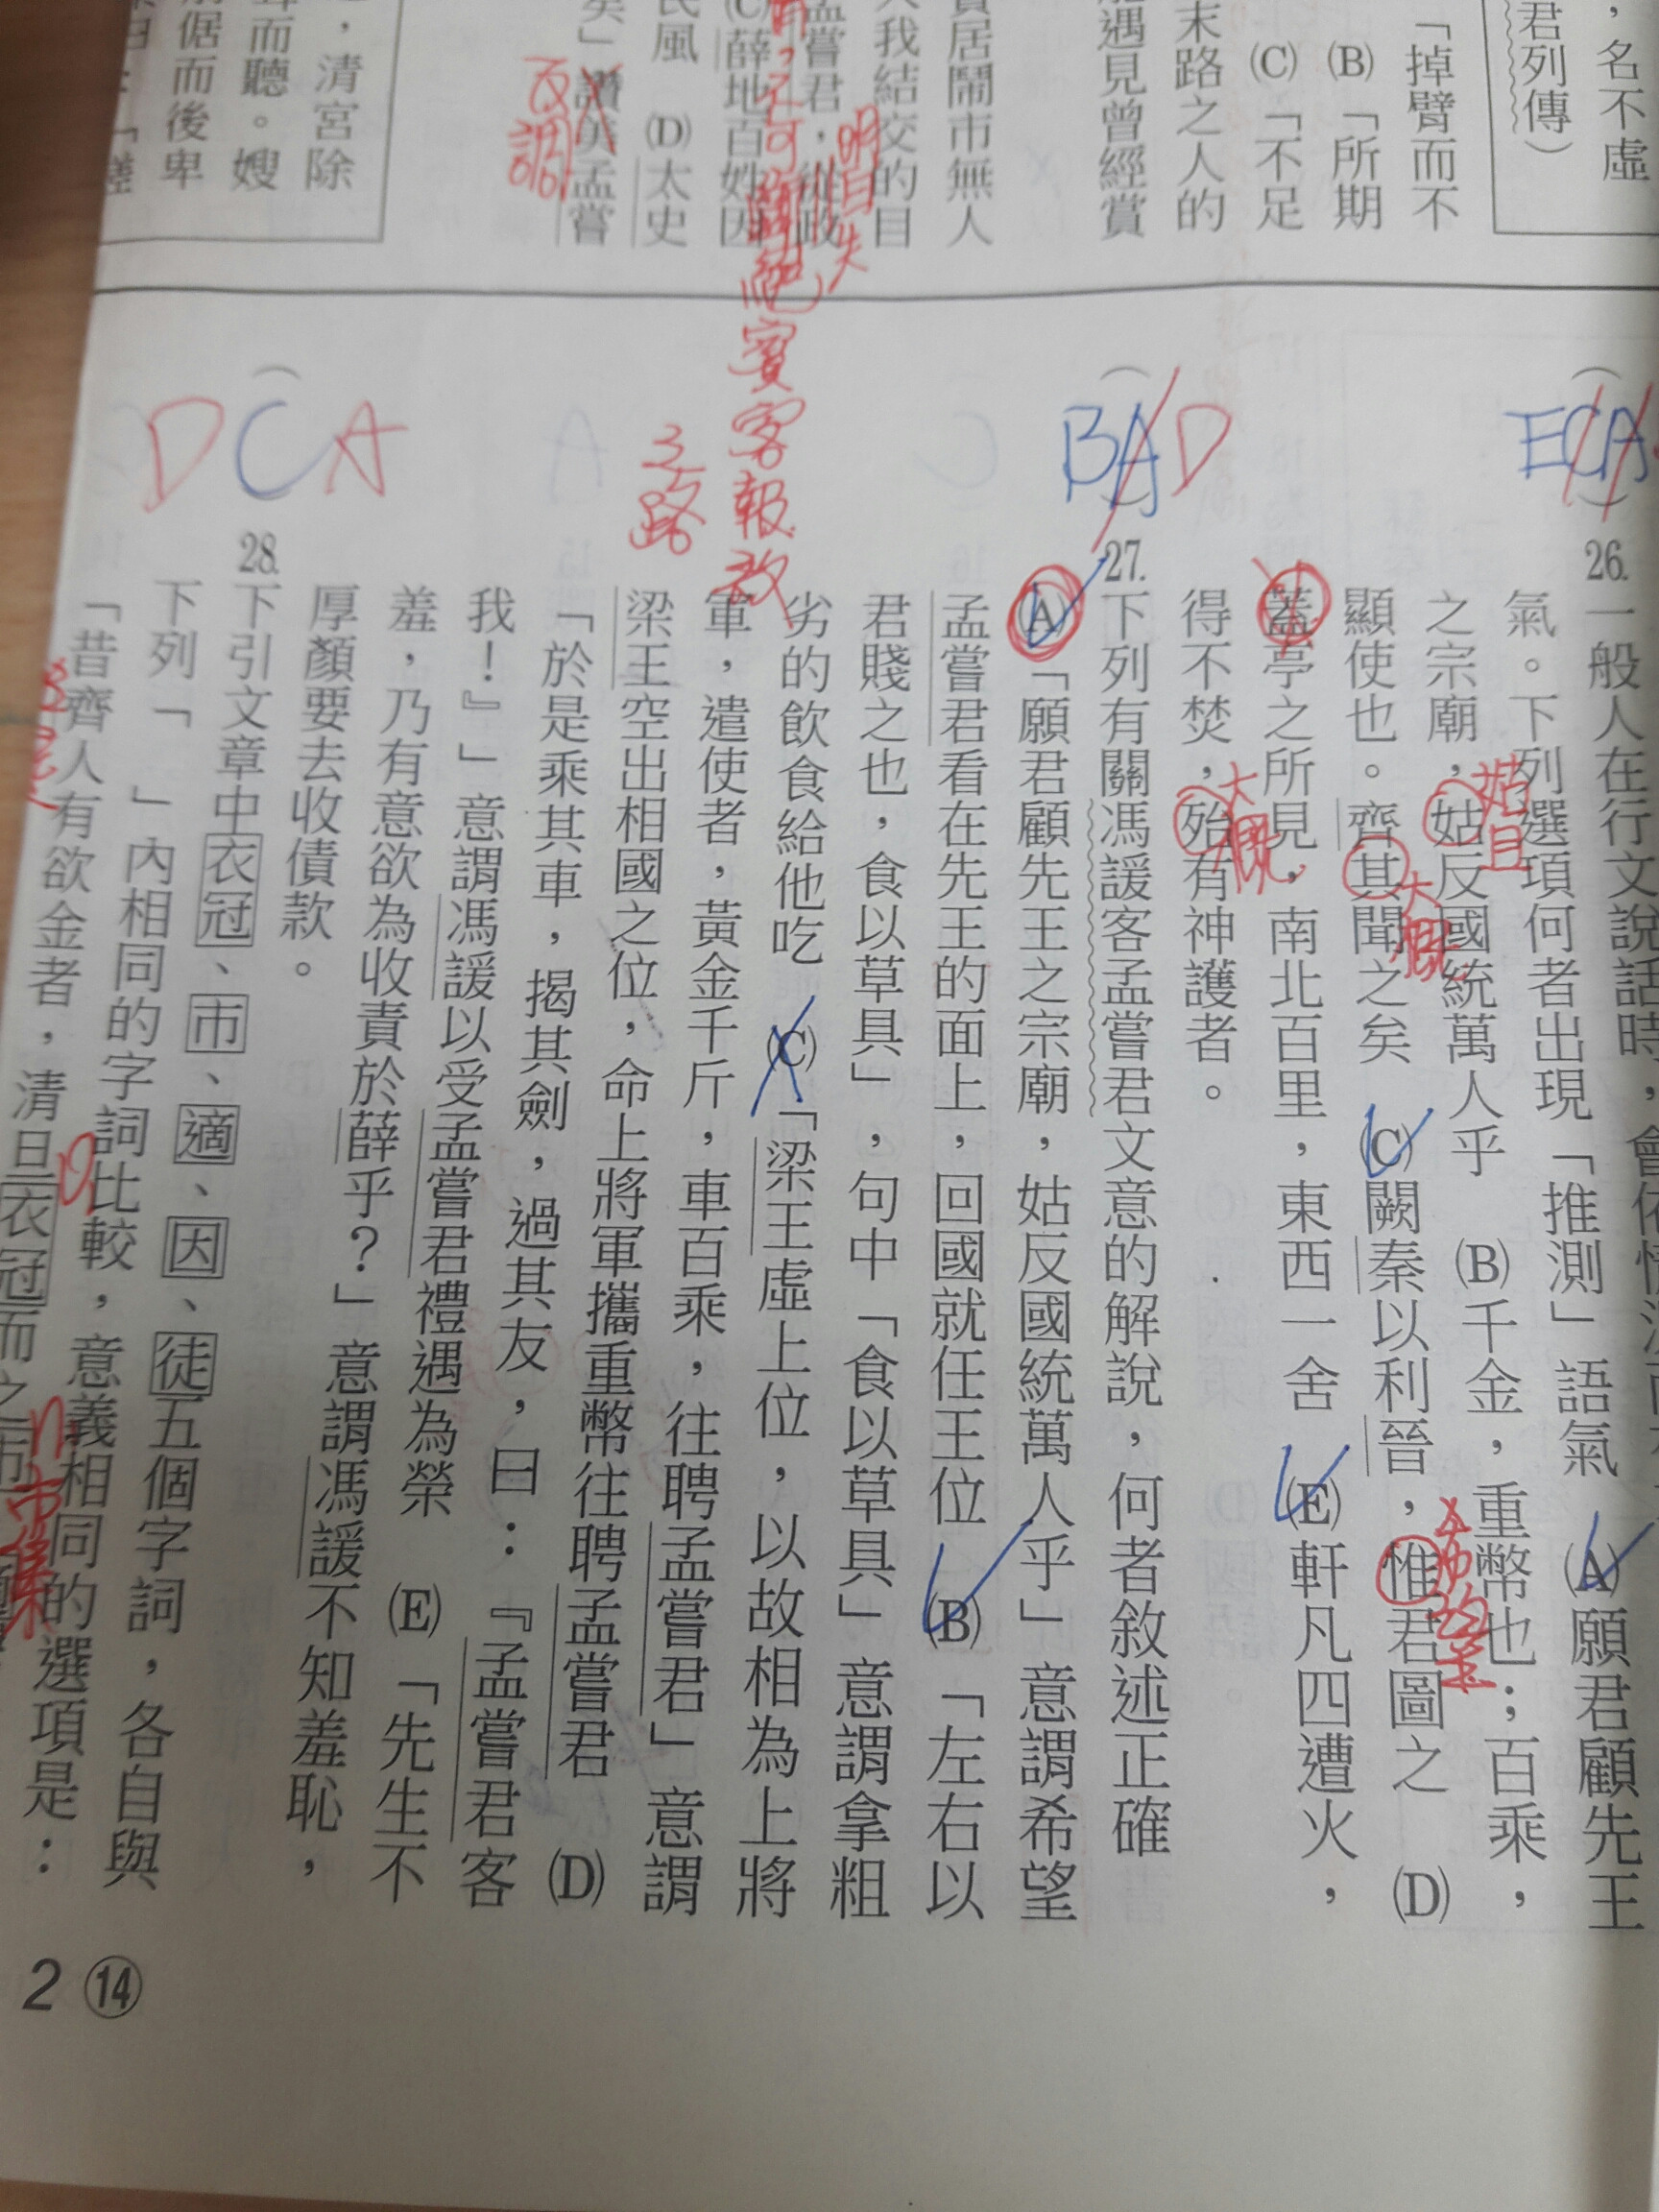 ，名不虛
君列傳）
「掉臂而不
(B)「所期
(C)「不足
末路之人的
遇見曾經賞
居鬧市無人
我結交的目
孟嘗君，從政
(C)薛地百姓因
民風　(D)太史
矣」讚美孟嘗
反諷
明日失
賓客報效
之路
，清宮除
而聽。嫂
倨而後卑
ECA
26.一般人在行文說話時，會依情況
氣。下列選項何者出現「推測」語氣　(A)願君顧先王
之宗廟，姑反國統萬人乎　(B)千金，重幣也；百乘，
顯使也。齊其聞之矣　(C)闕秦以利晉，惟君圖之　(D)
蓋亭之所見，南北百里，東西一舍　(E)軒凡四遭火，
得不焚，殆有神護者。
姑且
大概
大概
BAD
27.下列有關馮諼客孟嘗君文意的解說，何者敘述正確
(A)「願君顧先王之宗廟，姑反國統萬人乎」意謂希望
孟嘗君看在先王的面上，回國就任王位　(B)「左右以
君賤之也，食以草具」，句中「食以草具」意謂拿粗
劣的飲食給他吃　(C)「梁王虛上位，以故相為上將
軍，遣使者，黃金千斤，車百乘，往聘孟嘗君」意謂
梁王空出相國之位，命上將軍攜重幣往聘孟嘗君　(D)
「於是乘其車，揭其劍，過其友，曰：『孟嘗君客
我！』」意謂馮諼以受孟嘗君禮遇為榮　(E)「先生不
羞，乃有意欲為收責於薛乎？」意謂馮諼不知羞恥，
厚顏要去收債款。
DCA
28.下引文章中衣冠、市、適、因、徒五個字詞，各自與
下列「　」內相同的字詞比較，意義相同的選項是：
「昔齊人有欲金者，清旦衣冠而之市
市集
2 ⑭